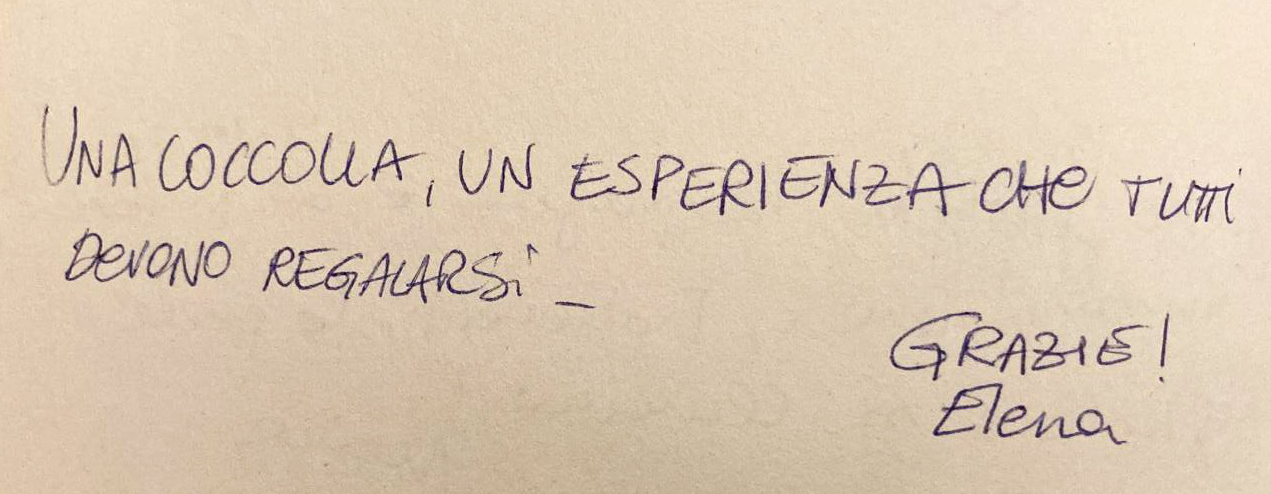 UNA COCCOLLA, UN ESPERIENZA CHE TUTTI
DEVONO REGALARSI _
GRAZIE!
Elena